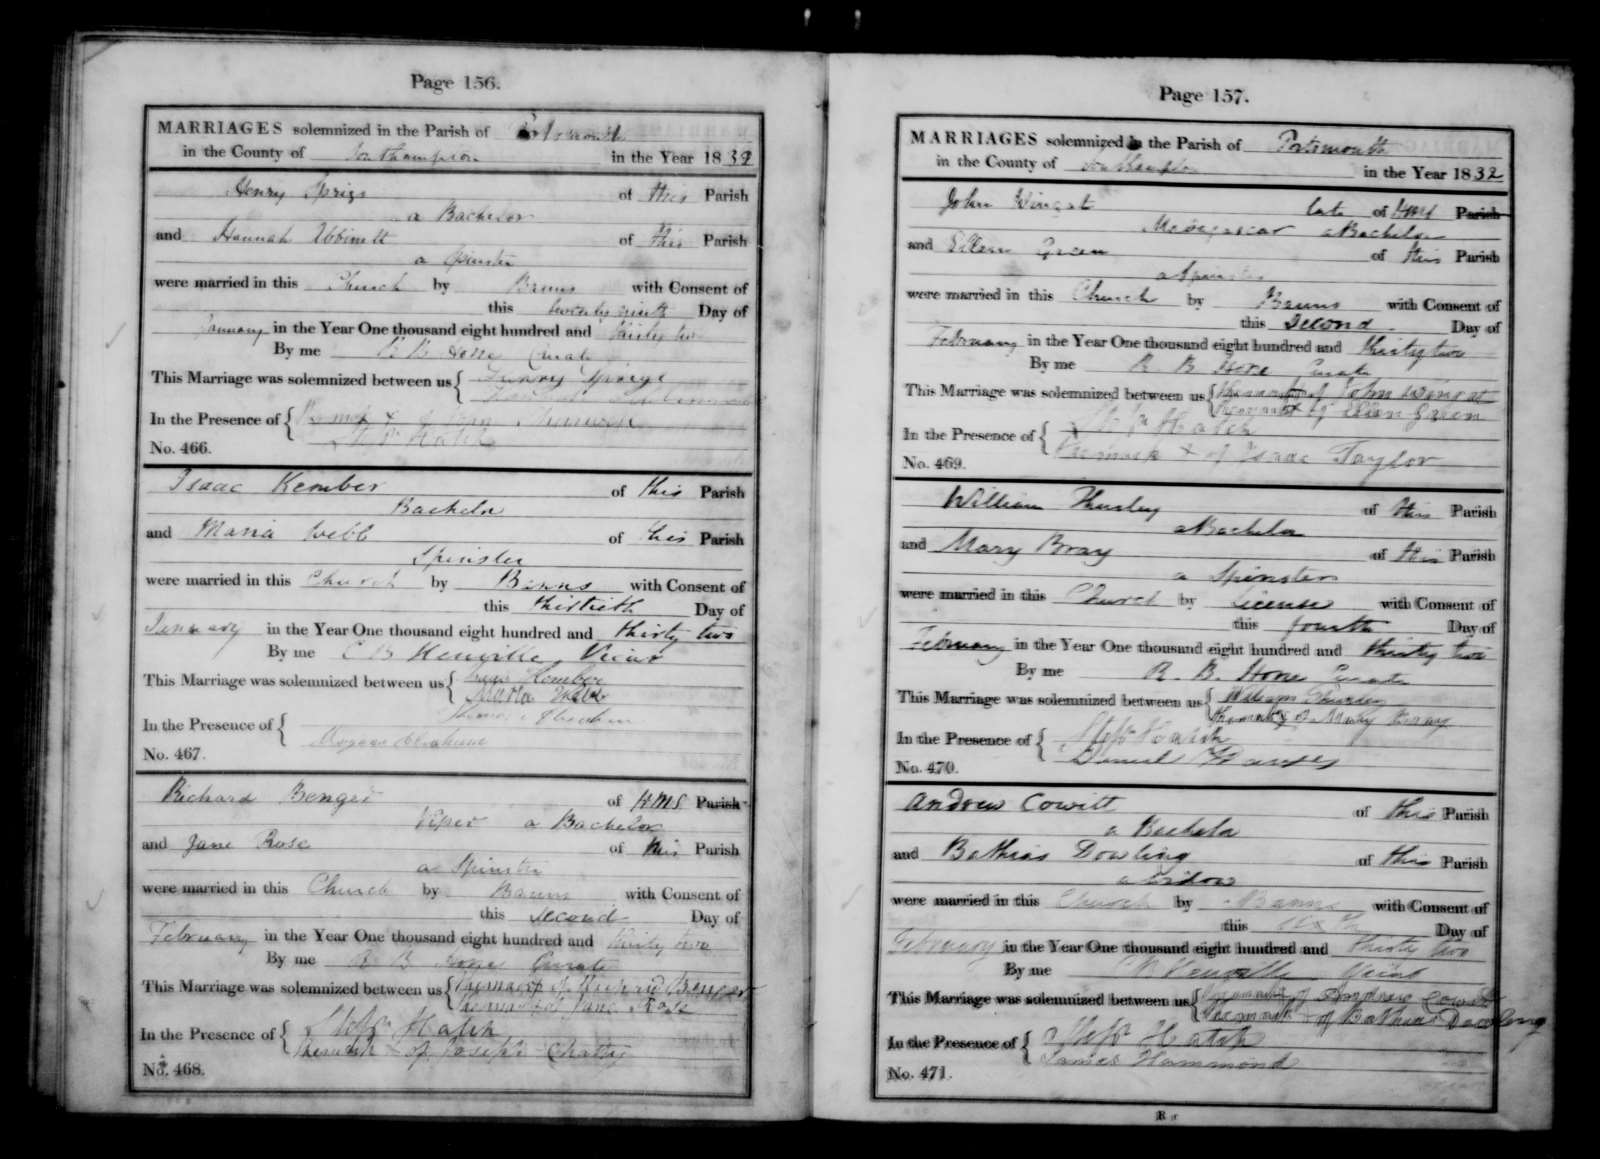 Page 156.
MARRIAGES solemnized in the Parish of Portsmouth
in the County of Southampton in the Year 1832
Henry Sprigs of this Parish
a Bachelor
and Hannah of this Parish
a Spinster
were married in this Church by Banns with Consent of
this twenty ninth Day of
January in the Year One thousand eight hundred and thirty two
By me R B Hone Curate
This Marriage was solemnized between us { Henry Sprigs
Hannah
In the Presence of { The mark x of
Hatch
No. 466.
Isaac Kember of this Parish
Bachelor
and Maria Webb of this Parish
Spinster
were married in this Church by Banns with Consent of
this thirtieth Day of
January in the Year One thousand eight hundred and thirty two
By me C B Henville Vicar
This Marriage was solemnized between us { Isaac Kember
Maria Webb
In the Presence of {
No. 467.
Richard Benger of HMS Parish
Viper a Bachelor
and Jane Rose of this Parish
a Spinster
were married in this Church by Banns with Consent of
this second Day of
February in the Year One thousand eight hundred and thirty two
By me R B Hone Curate
This Marriage was solemnized between us { The mark x of Richard Benger
The mark x of Jane Rose
In the Presence of { Stepn Hatch
The mark x of Joseph
No. 468.
Page 157.
MARRIAGES solemnized in the Parish of Portsmouth
in the County of Southampton in the Year 1832
John Wingat late of HMS Parish
Madagascar a Bachelor
and Ellen Green of this Parish
a Spinster
were married in this Church by Banns with Consent of
this Second Day of
February in the Year One thousand eight hundred and thirty two
By me R B Hone Curate
This Marriage was solemnized between us { The mark x of John Wingat
The mark x of Ellen Green
In the Presence of { Hatch
The mark x of Isaac Taylor
No. 469.
William Thursley of this Parish
a Bachelor
and Mary Bray of this Parish
a Spinster
were married in this Church by License with Consent of
this fourth Day of
February in the Year One thousand eight hundred and thirty two
By me R. B. Hone Curate
This Marriage was solemnized between us { William Thursley
The mark x of Mary Bray
In the Presence of { Stepn Hatch
Daniel
No. 470.
Andrew Cowitt of this Parish
a Bachelor
and Bathias Dowling of this Parish
a Widow
were married in this Church by Banns with Consent of
this sixth Day of
February in the Year One thousand eight hundred and thirty two
By me C B Henville Vicar
This Marriage was solemnized between us { The mark x of Andrew Cowitt
The mark x of Bathias Dowling
In the Presence of { Stepn Hatch
James Hammond
No. 471.
R r